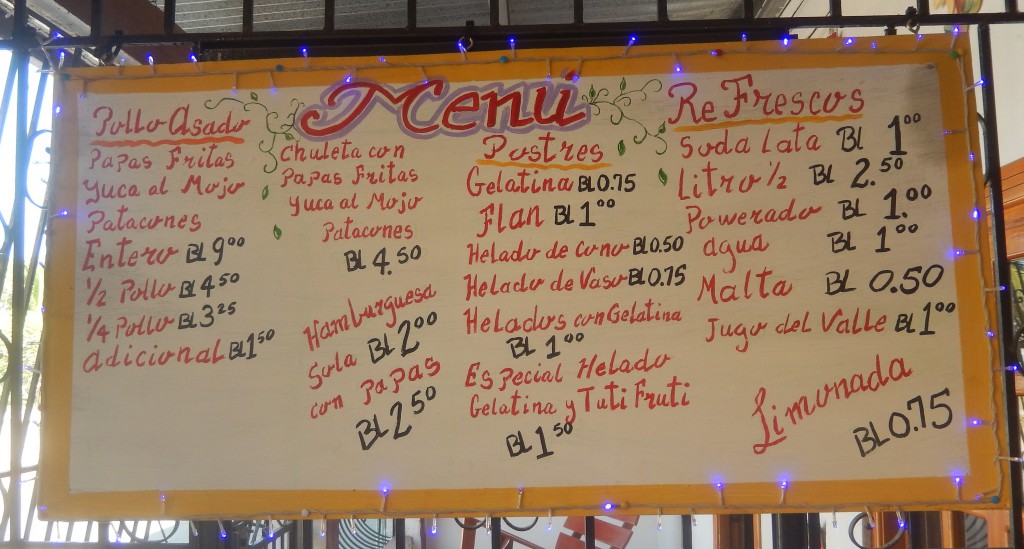 Menú
Pollo Asado
Papas Fritas
Yuca al Mojo
Patacones
Entero BL 9⁰⁰
½ Pollo BL 4⁵⁰
¼ Pollo BL 3²⁵
adicional BL 1⁵⁰
Chuleta con
Papas Fritas
Yuca al Mojo
Patacones
BL 4.⁵⁰
Hamburguesa
Sola BL 2⁰⁰
con papas
BL 2⁵⁰
Postres
Gelatina BL 0.75
Flan BL 1⁰⁰
Helado de cono BL 0.50
Helado de Vaso BL 0.75
Helados con Gelatina
BL 1⁰⁰
Especial Helado
Gelatina y Tuti Fruti
BL 1⁵⁰
ReFrescos
Soda Lata BL 1⁰⁰
Litro ½ BL 2.⁵⁰
Powerado BL 1.⁰⁰
agua BL 1⁰⁰
Malta BL 0.50
Jugo del Valle BL 1⁰⁰
Limonada
BL 0.75